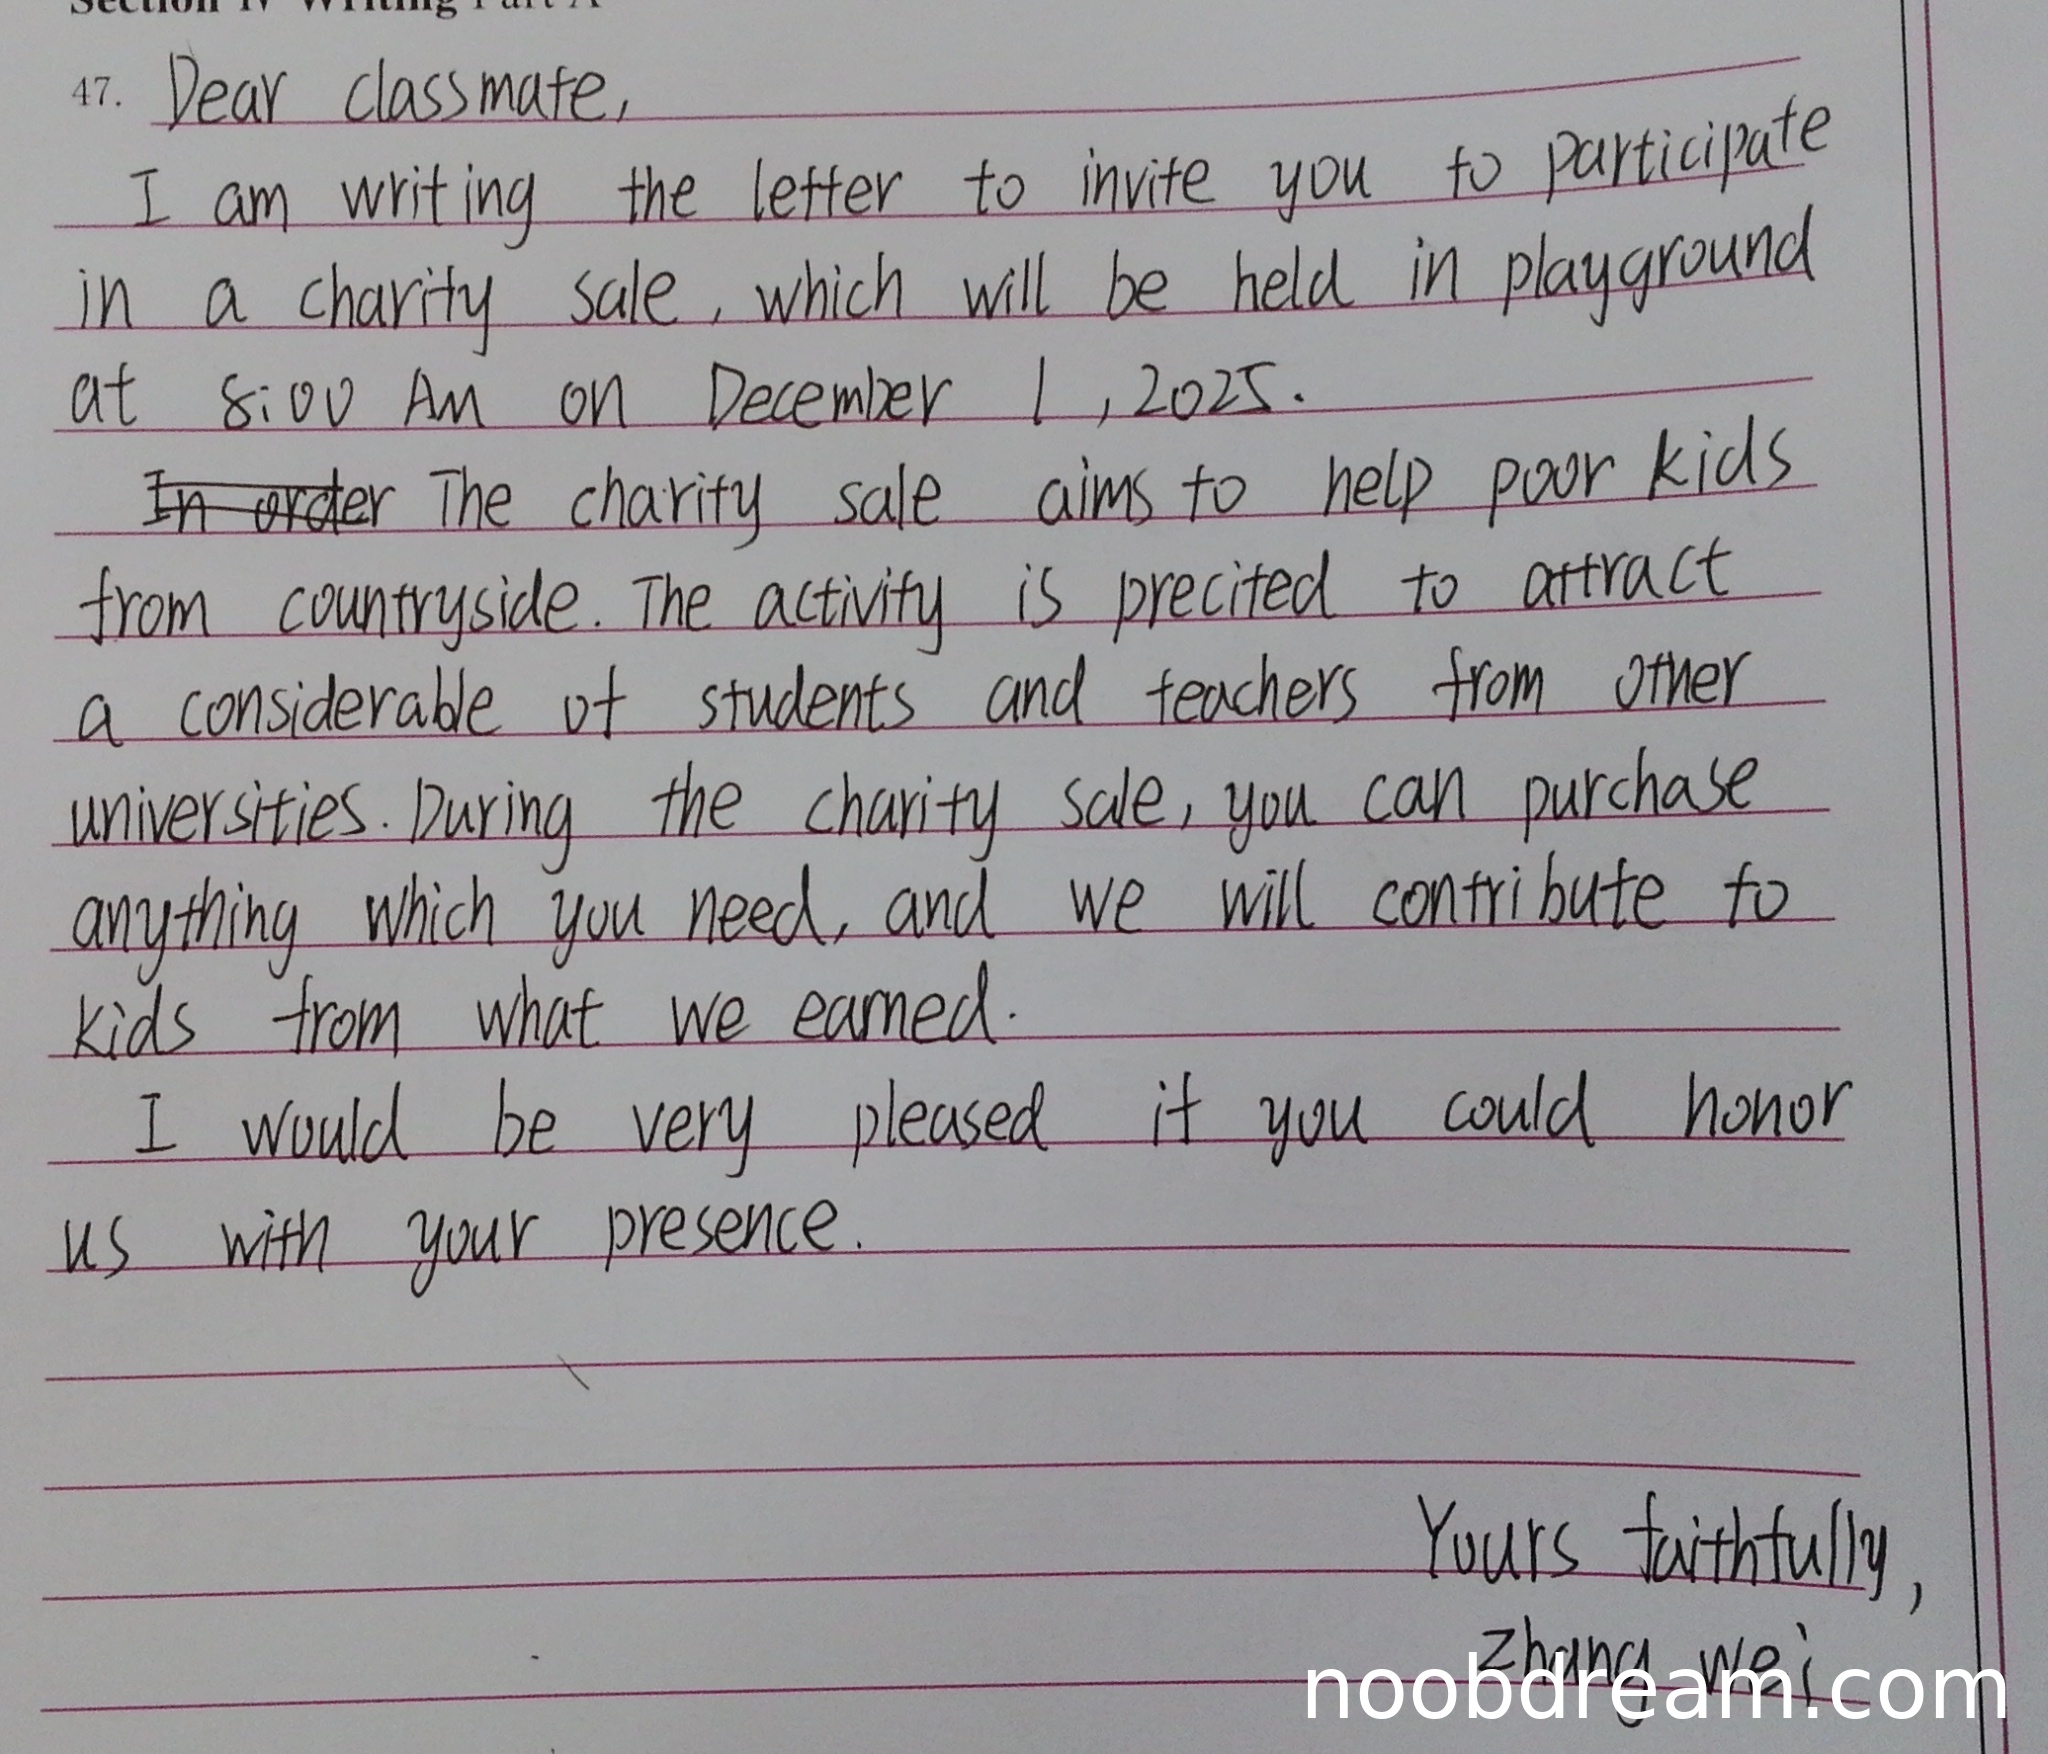 Section IV Writing Part A
47. Dear classmate,
I am writing the letter to invite you to participate
in a charity sale, which will be held in playground
at 8:00 Am on December 1, 2025.
In order The charity sale aims to help poor kids
from countryside. The activity is precited to attract
a considerable of students and teachers from other
universities. During the charity sale, you can purchase
anything which you need, and we will contribute to
kids from what we earned.
I would be very pleased if you could honor
us with your presence.
Yours faithfully,
Zhang wei
noobdream.com